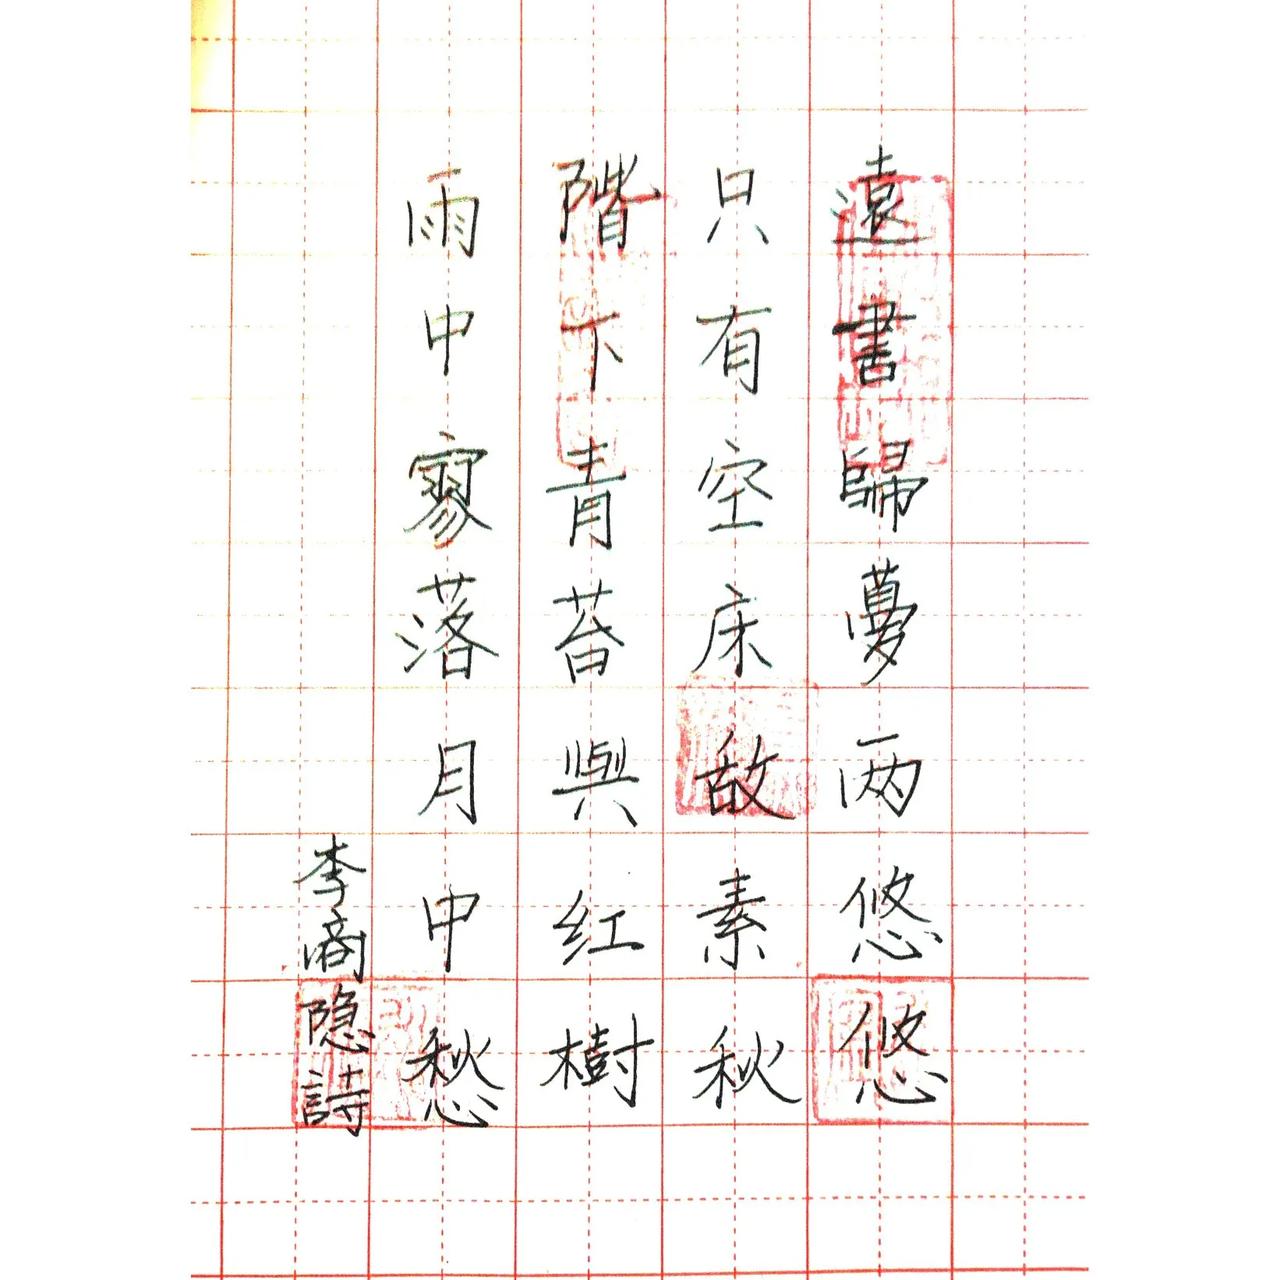 遠書歸夢两悠悠
只有空床敌素秋
階下青苔與红樹
雨中寥落月中愁
李商隐詩